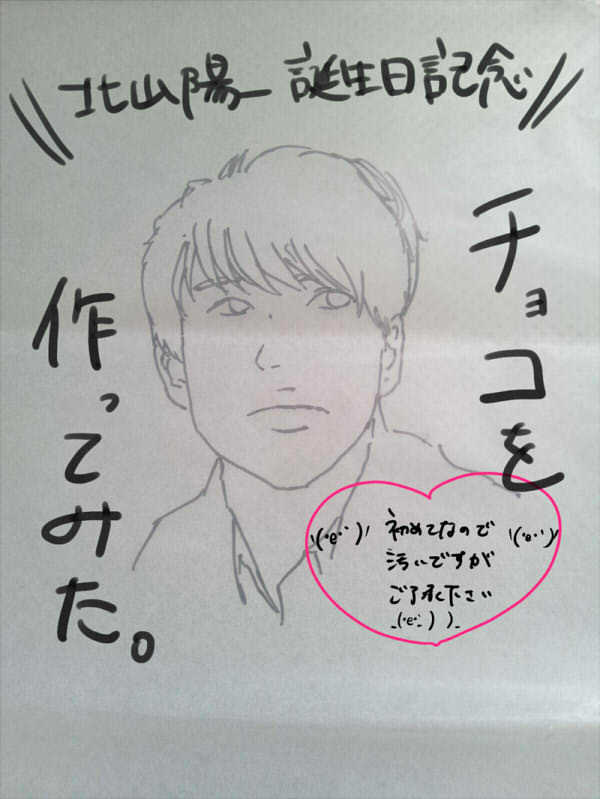 \\北山陽一 誕生日記念//
チョコを
作ってみた。
初めてなので
汚いですが
ご了承下さい